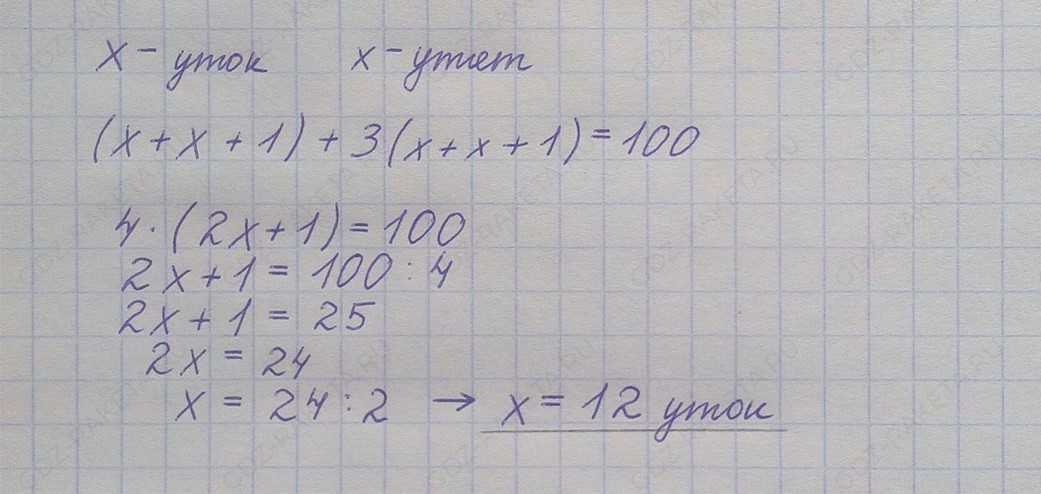 x - уток x - утят
(x + x + 1) + 3(x + x + 1) = 100
4 · (2x + 1) = 100
2x + 1 = 100 : 4
2x + 1 = 25
2x = 24
x = 24 : 2 → x = 12 уток